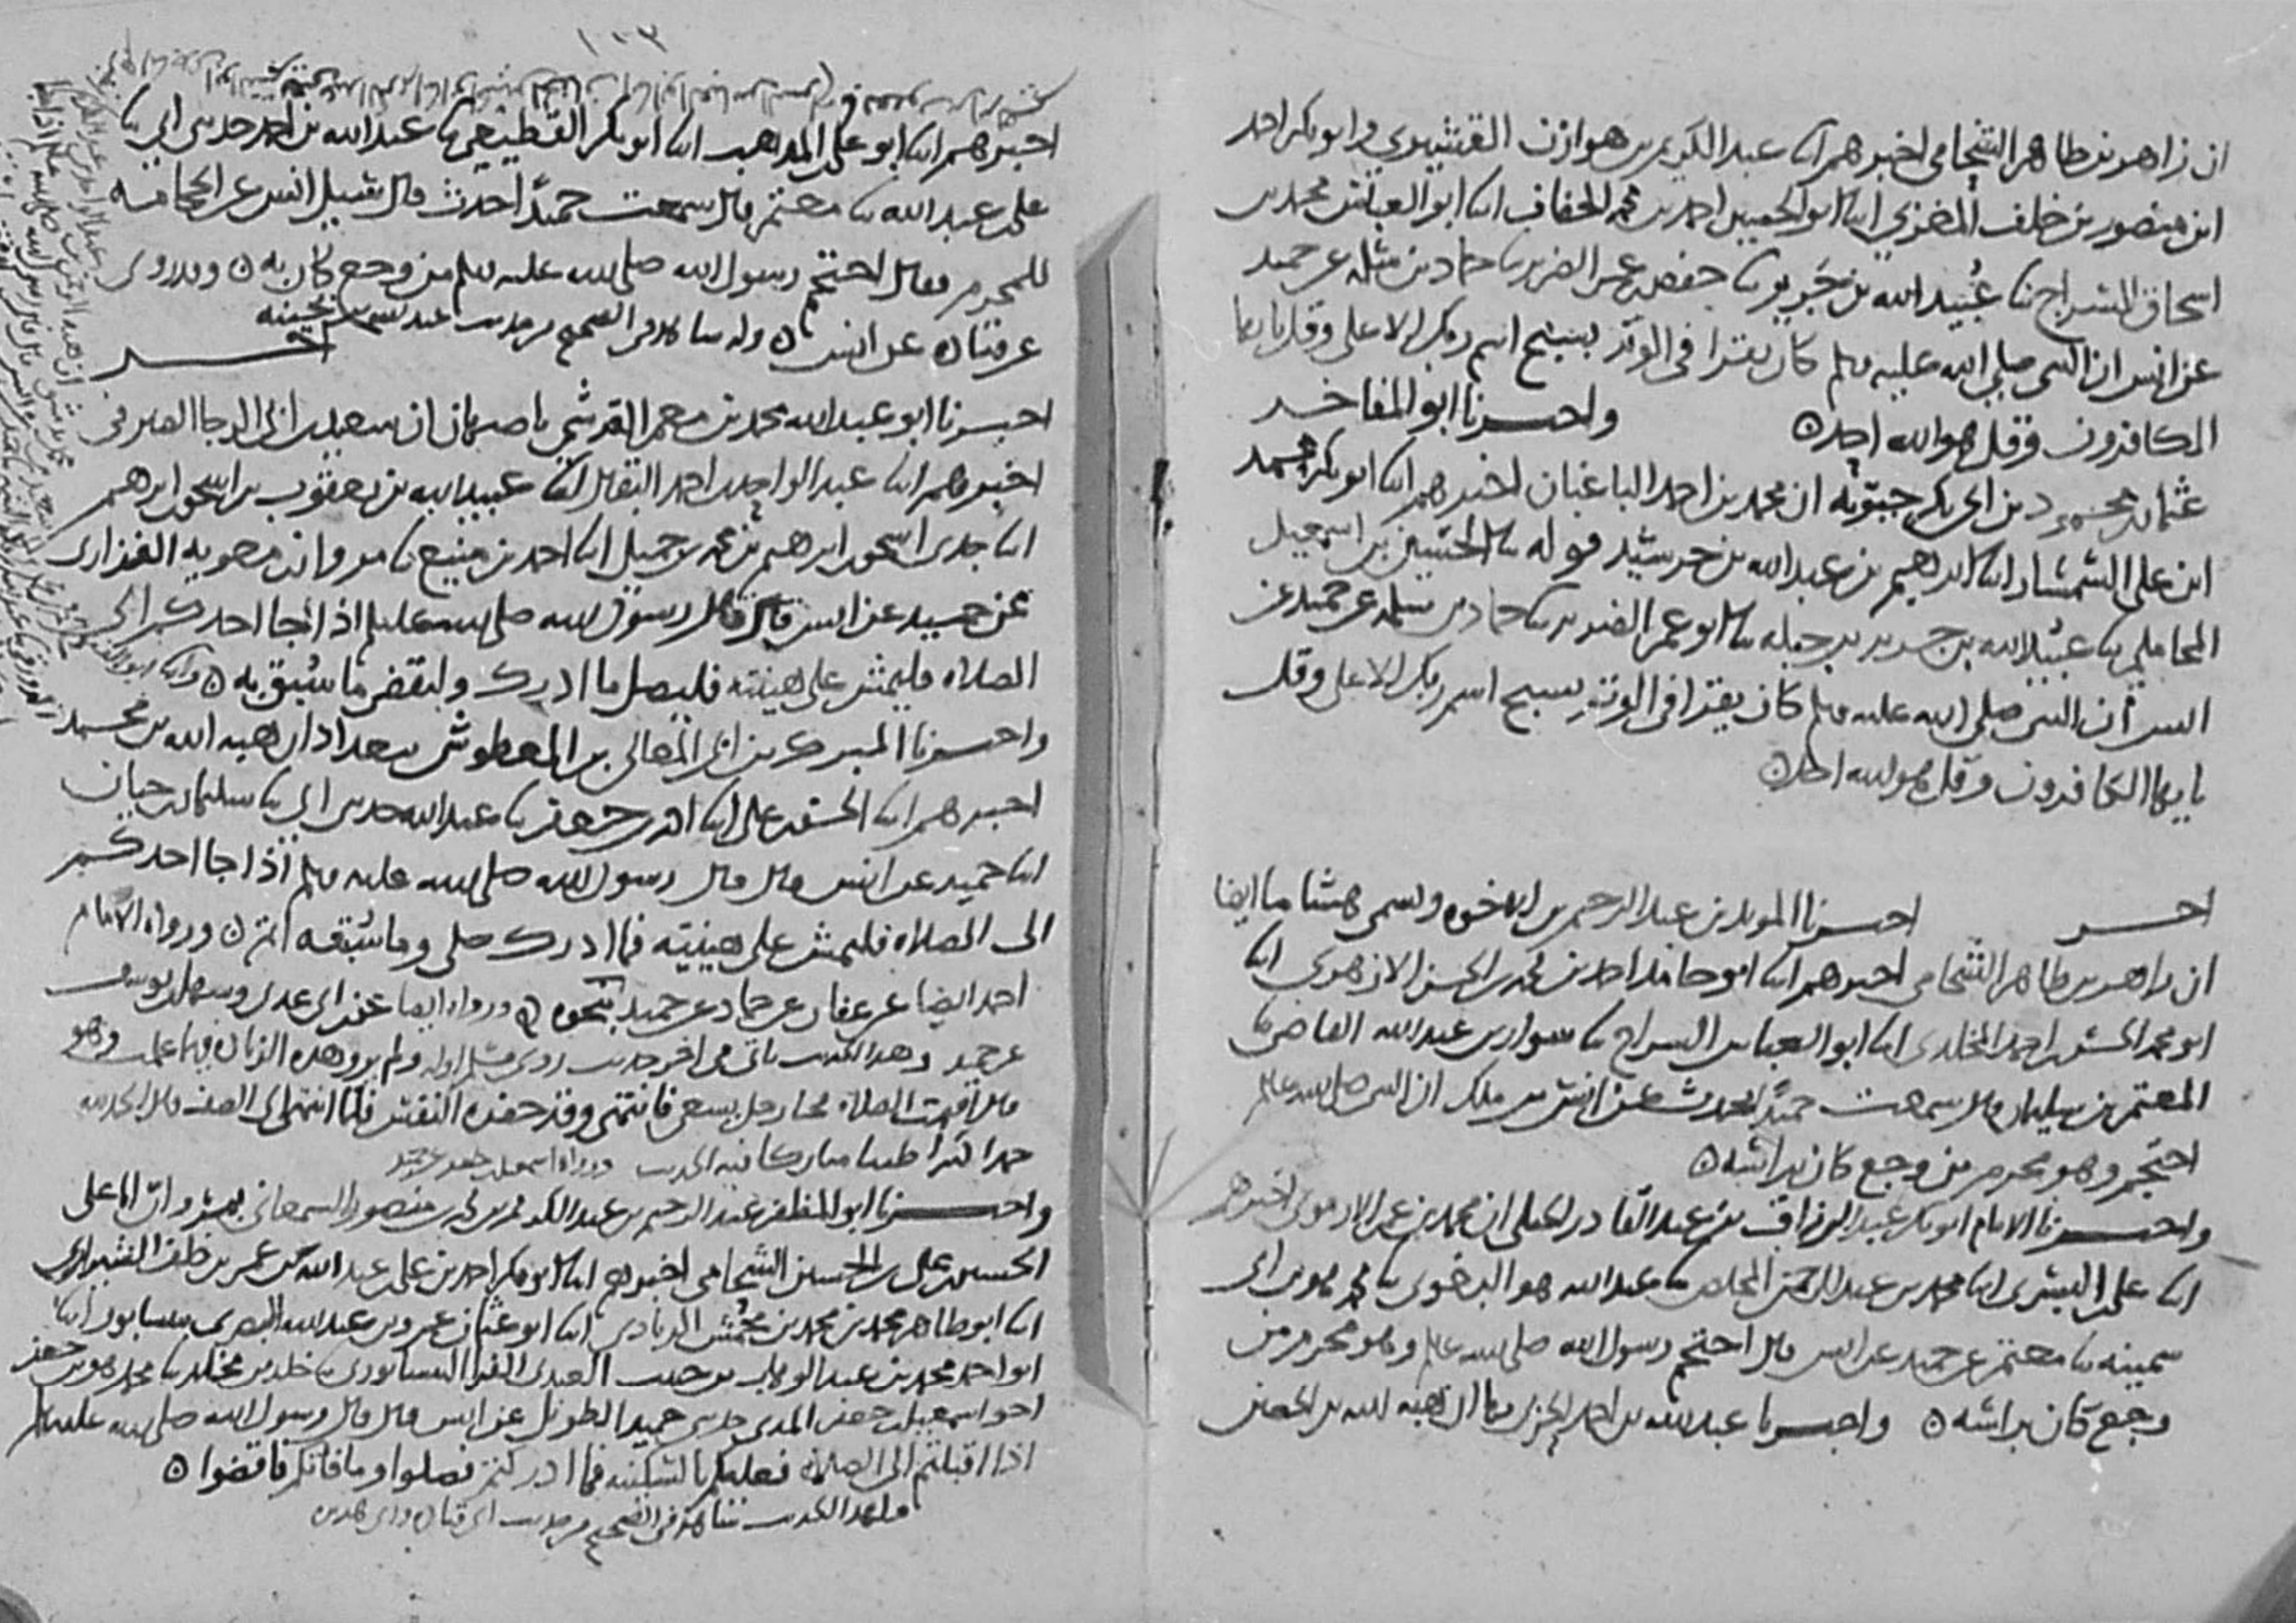 ان زاهر بن طاهر الشحامي اخبرهم ابنا عبد الكريم بن هوازن القشيري وابو بكر احمد
ابن منصور بن خلف المغربي ابنا ابو الحسين احمد بن محمد الخفاف ابنا ابو العباس محمد بن
اسحاق السراج ثنا عبيد الله بن جرير ثنا حفص بن عمر الضرير ثنا حماد بن سلمة عن حميد
عن انس ان النبي صلى الله عليه وسلم كان يقرا في الوتر بسبح اسم ربك الاعلى وقل يا يها
الكافرون وقل هو الله احد ۞ واخبرنا ابو المفاخر
عثمان بن محمود بن ابي بكر جبويه ان محمد بن احمد الباغبان اخبرهم ابنا ابو بكر محمد
ابن علي السمسار ابنا ابراهيم بن عبد الله بن خرشيد قوله ثنا الحسين بن اسمعيل
المحاملي ثنا عبيد الله بن جرير بن جبله ثنا ابو عمر الضرير ثنا حماد بن سلمه عن حميد عن
انس ان النبي صلى الله عليه وسلم كان يقرا في الوتر بسبح اسم ربك الاعلى وقل
يا يها الكافرون وقل هو الله احد ۞
اخر اخبرنا المويد بن عبد الرحيم بن الاخوه ويسمى هشاما ايضا
ان زاهر بن طاهر الشحامي اخبرهم ابنا ابو حامد احمد بن الحسن الازهري ابنا
ابو محمد الحسن بن احمد المخلدي ابنا ابو العباس السراج ثنا سوار بن عبد الله القاضي ثنا
المعتمر بن سليمان قال سمعت حميدا يحدث عن انس بن ملك ان النبي صلى الله عليه وسلم
احتجم وهو محرم من وجع كان براسه ۞
واخبرنا الامام ابو بكر عبد الرزاق بن عبد القادر الجيلي ان محمد بن عمر الارموي اخبرهم
ابنا علي بن البسري ابنا محمد بن عبد الرحمن المخلص ثنا عبد الله هو البغوي ثنا محمد هو ابن ابي
سمينه ثنا معتمر عن حميد عن انس قال احتجم رسول الله صلى الله عليه وسلم وهو محرم من
وجع كان براسه ۞ واخبرنا عبد الله بن احمد الحربي بها ان هبة الله بن الحصين
١٠٣
اخبرهم ابنا ابو علي بن المذهب ابنا ابو بكر القطيعي ثنا عبد الله بن احمد حدثني ابي ثنا
علي بن عبد الله ثنا معتمر قال سمعت حميدا احدث قال سئل انس عن الحجامة
للمحرم فقال احتجم رسول الله صلى الله عليه وسلم من وجع كان به ۞ وقد روي
عن قتاده عن انس ۞ وله شاهد في الصحيح من حديث عبد الله بن بحينه
اخر
اخبرنا ابو عبد الله محمد بن معمر القرشي باصبهان ان سعيد بن ابي الرجا الصيرفي
اخبرهم ابنا عبد الواحد بن احمد البقال ابنا عبيد الله بن يعقوب بن اسحق بن ابرهيم
ابنا جدي اسحق بن ابرهيم بن محمد بن جميل ابنا احمد بن منيع ثنا مروان بن معويه الفزاري
عن حميد عن انس قال قال رسول الله صلى الله عليه وسلم اذا جا احدكم الى
الصلاه فليمش على هينته فليصل ما ادرك وليقض ما سبق به ۞
واخبرنا المبرك بن ابي المعالي بن المعطوش ببغداد ان هبه الله بن محمد
اخبرهم ابنا الحسن بن علي ابنا احمد بن جعفر ثنا عبد الله حدثني ابي ثنا سليمان بن حيان
ابنا حميد عن انس قال قال رسول الله صلى الله عليه وسلم اذا جا احدكم
الى الصلاه فليمش على هينته فما ادرك صلى وما سبقه اتم ۞ ورواه الامام
احمد ايضا عن عفان عن حماد عن حميد بنحوه ۞ ورواه ايضا عن ابن ابي عدي وسهل بن يوسف
عن حميد وهذا الحديث ياتي في اخر حديث روي مسلم اوله ولم يرو هذه الزيادة فيما علمت وهو
قال اقيمت الصلاه فجا رجل يسعى فانتهى وقد حفزه النفس فلما انتهى الى الصف قال الحمد لله
حمدا كثيرا طيبا مباركا فيه الحديث ورواه اسمعيل بن جعفر عن حميد
واخبرنا ابو المظفر عبد الرحيم بن عبد الكريم بن محمد بن منصور السمعاني بمرو ان ابا علي
الحسين بن علي بن الحسين الشحامي اخبرهم ابنا ابو بكر احمد بن علي بن عبد الله بن عمر بن خلف الشيرازي
ابنا ابو طاهر محمد بن محمد بن محمش الزيادي ابنا ابو عثمان عمرو بن عبد الله البصري بنيسابور ابنا
ابو احمد محمد بن عبد الوهاب بن حبيب العبدي الفرا النيسابوري ثنا خلد بن مخلد ثنا محمد هو بن جعفر
اخو اسمعيل بن جعفر المدني حدثني حميد الطويل عن انس قال قال رسول الله صلى الله عليه وسلم
اذا اقبلتم الى الصلاه فعليكم بالسكينه فما ادركتم فصلوا وما فاتكم فاقضوا ۞
ولهذا الحديث شاهد في الصحيح من حديث ابي قتاده وابي هريره